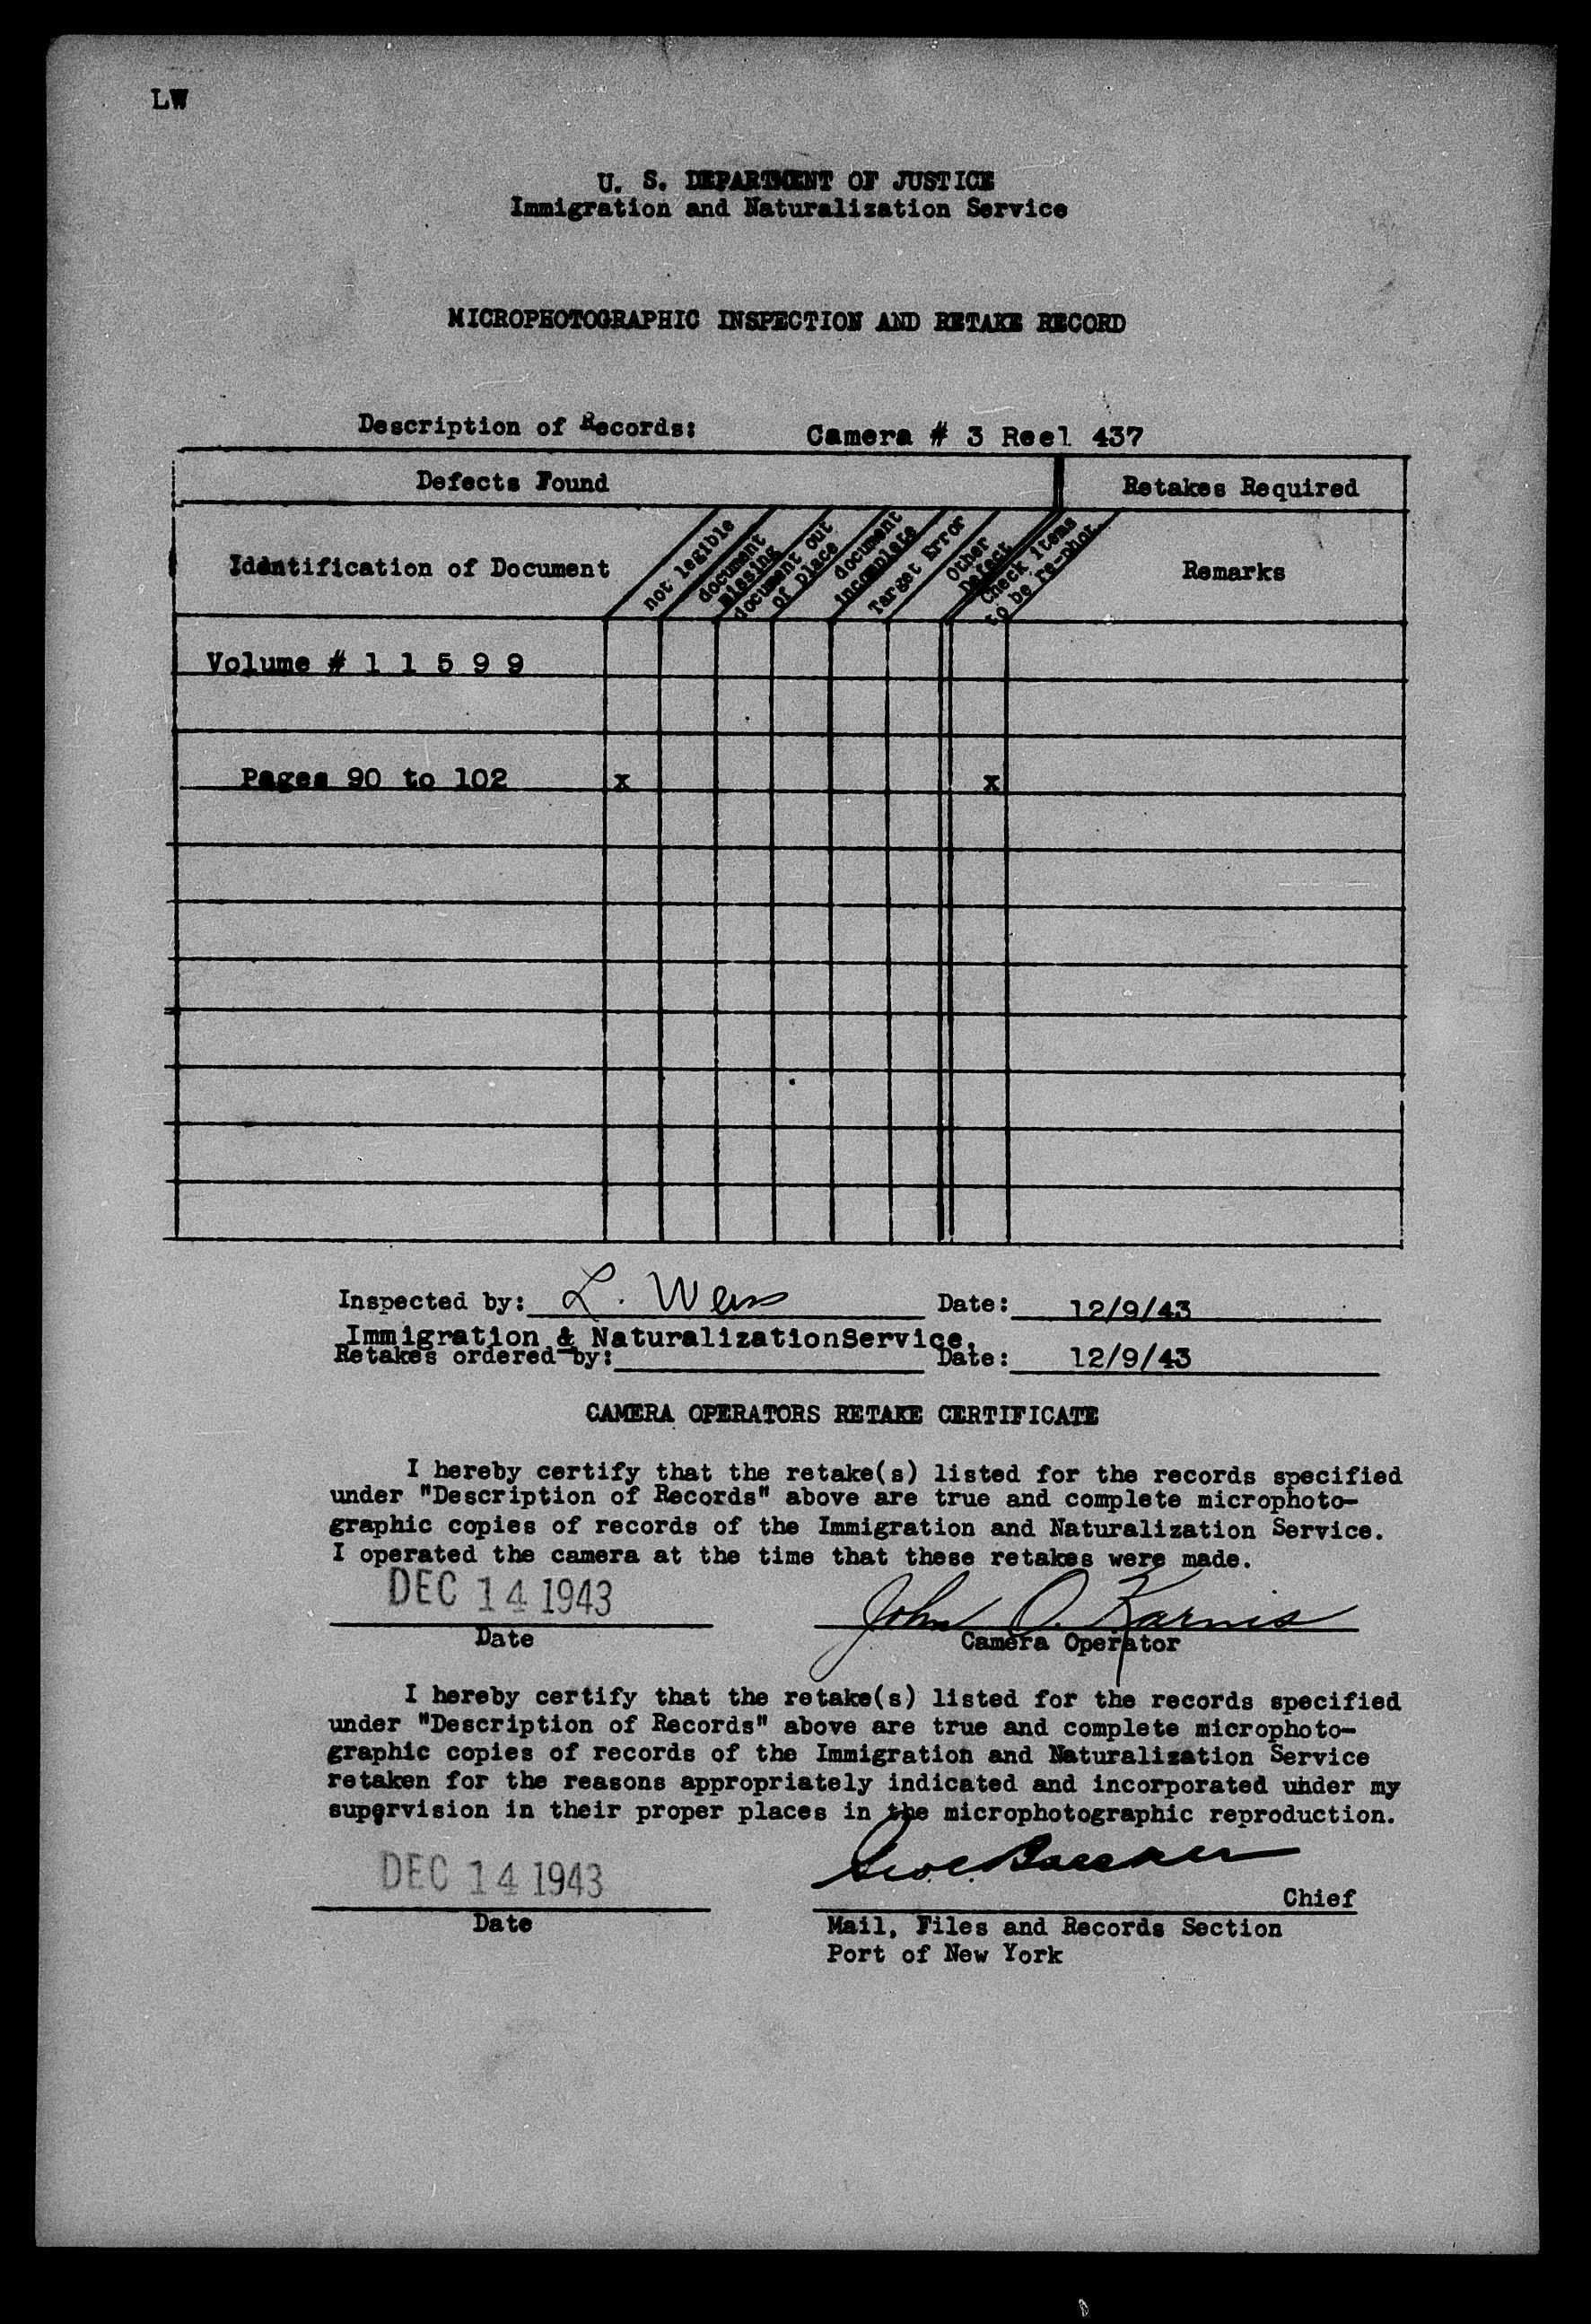 LW
U. S. DEPARTMENT OF JUSTICE
Immigration and Naturalization Service
MICROPHOTOGRAPHIC INSPECTION AND RETAKE RECORD
Description of Records: Camera # 3 Reel 437
Defects Found Retakes Required
Identification of Document
not legible
document
missing
document out
of place
document
incomplete
Target Error
Other
Defect
Check items
to be re-phot.
Remarks
Volume # 1 1 5 9 9
Pages 90 to 102 x x
Inspected by: L. Weiss Date: 12/9/43
Immigration & NaturalizationService.
Retakes ordered by: Date: 12/9/43
CAMERA OPERATORS RETAKE CERTIFICATE
I hereby certify that the retake(s) listed for the records specified
under "Description of Records" above are true and complete microphoto-
graphic copies of records of the Immigration and Naturalization Service.
I operated the camera at the time that these retakes were made.
DEC 14 1943 John O. Karnis
Date Camera Operator
I hereby certify that the retake(s) listed for the records specified
under "Description of Records" above are true and complete microphoto-
graphic copies of records of the Immigration and Naturalization Service
retaken for the reasons appropriately indicated and incorporated under my
supervision in their proper places in the microphotographic reproduction.
DEC 14 1943
Chief
Date Mail, Files and Records Section
Port of New York